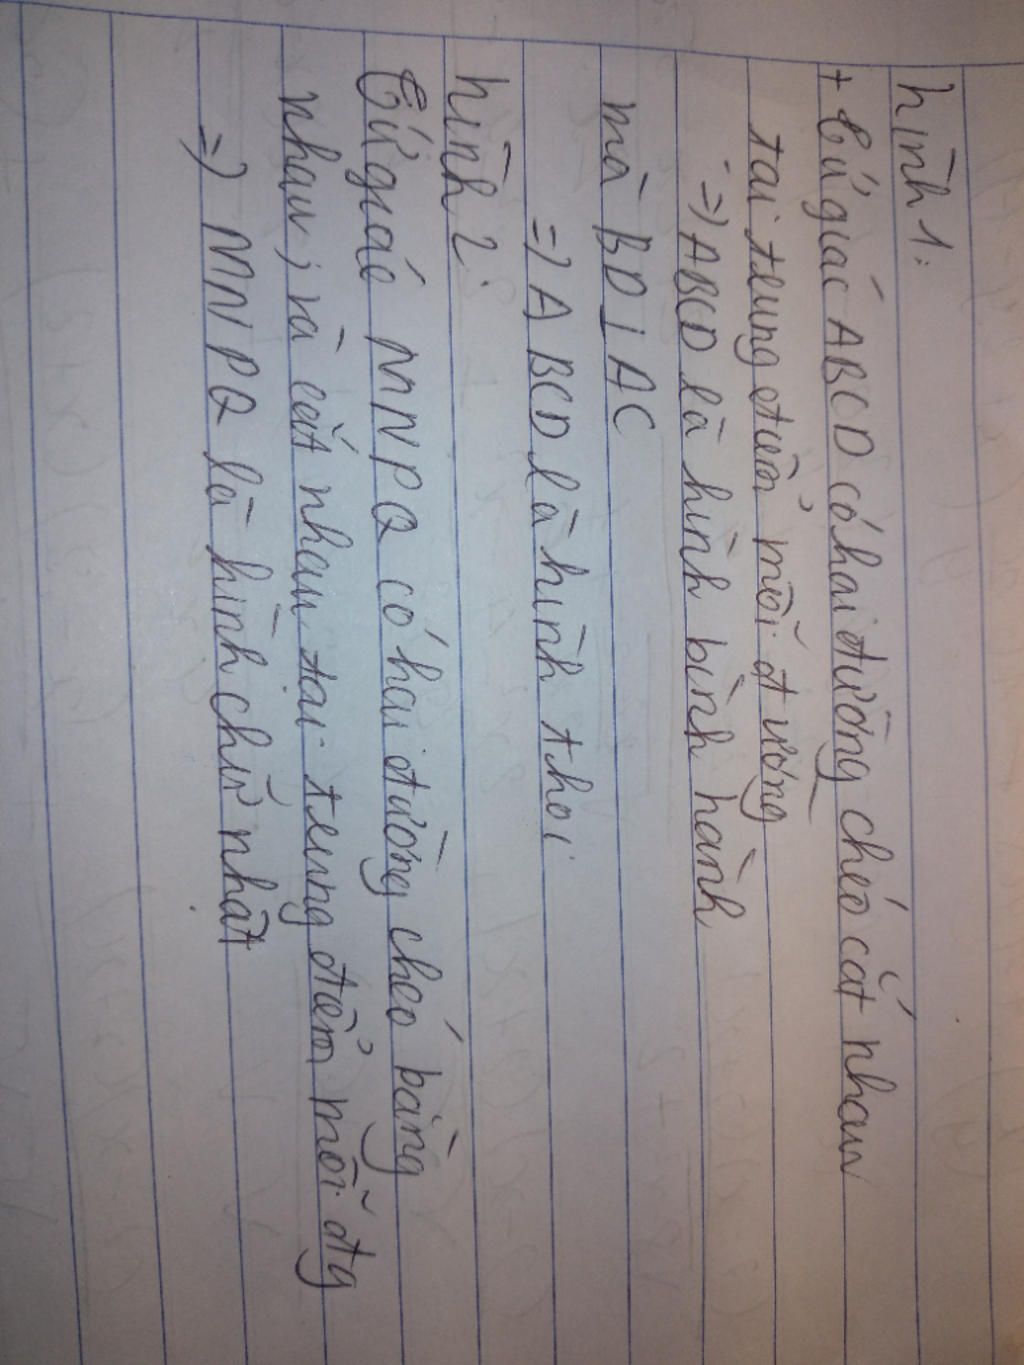 hình 1:
+ Tứ giác ABCD có hai đường chéo cắt nhau
tại trung điểm mỗi đường
=> ABCD là hình bình hành
mà BD ⊥ AC
=> ABCD là hình thoi
hình 2:
Tứ giác MNPQ có hai đường chéo bằng
nhau, và cắt nhau tại trung điểm mỗi đg
=> MNPQ là hình chữ nhật